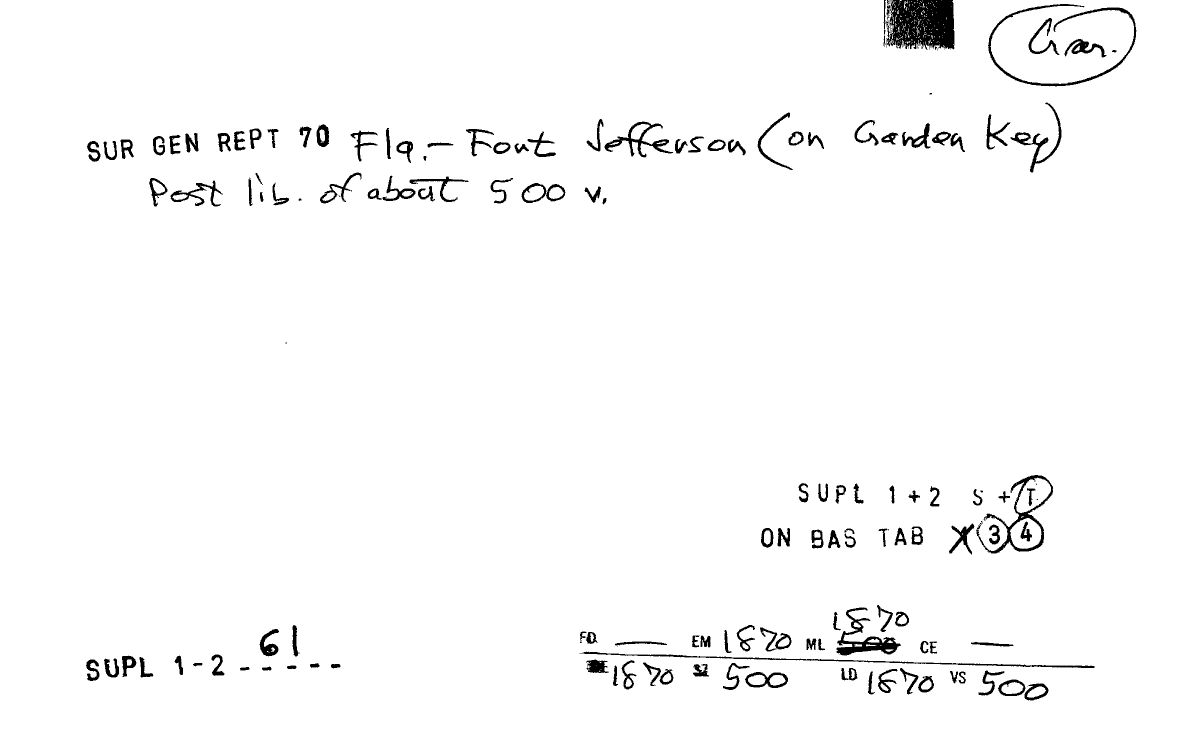 Gar.
SUR GEN REPT 70 Fla.- Fort Jefferson (on Garden Key)
Post lib. of about 500 v.
SUPL 1+2 S + T
ON BAS TAB X 3 4
1870
FD — EM 1870 ML CE —
SUPL 1-2 - 61 - - -
1870 SZ 500 LD 1870 VS 500